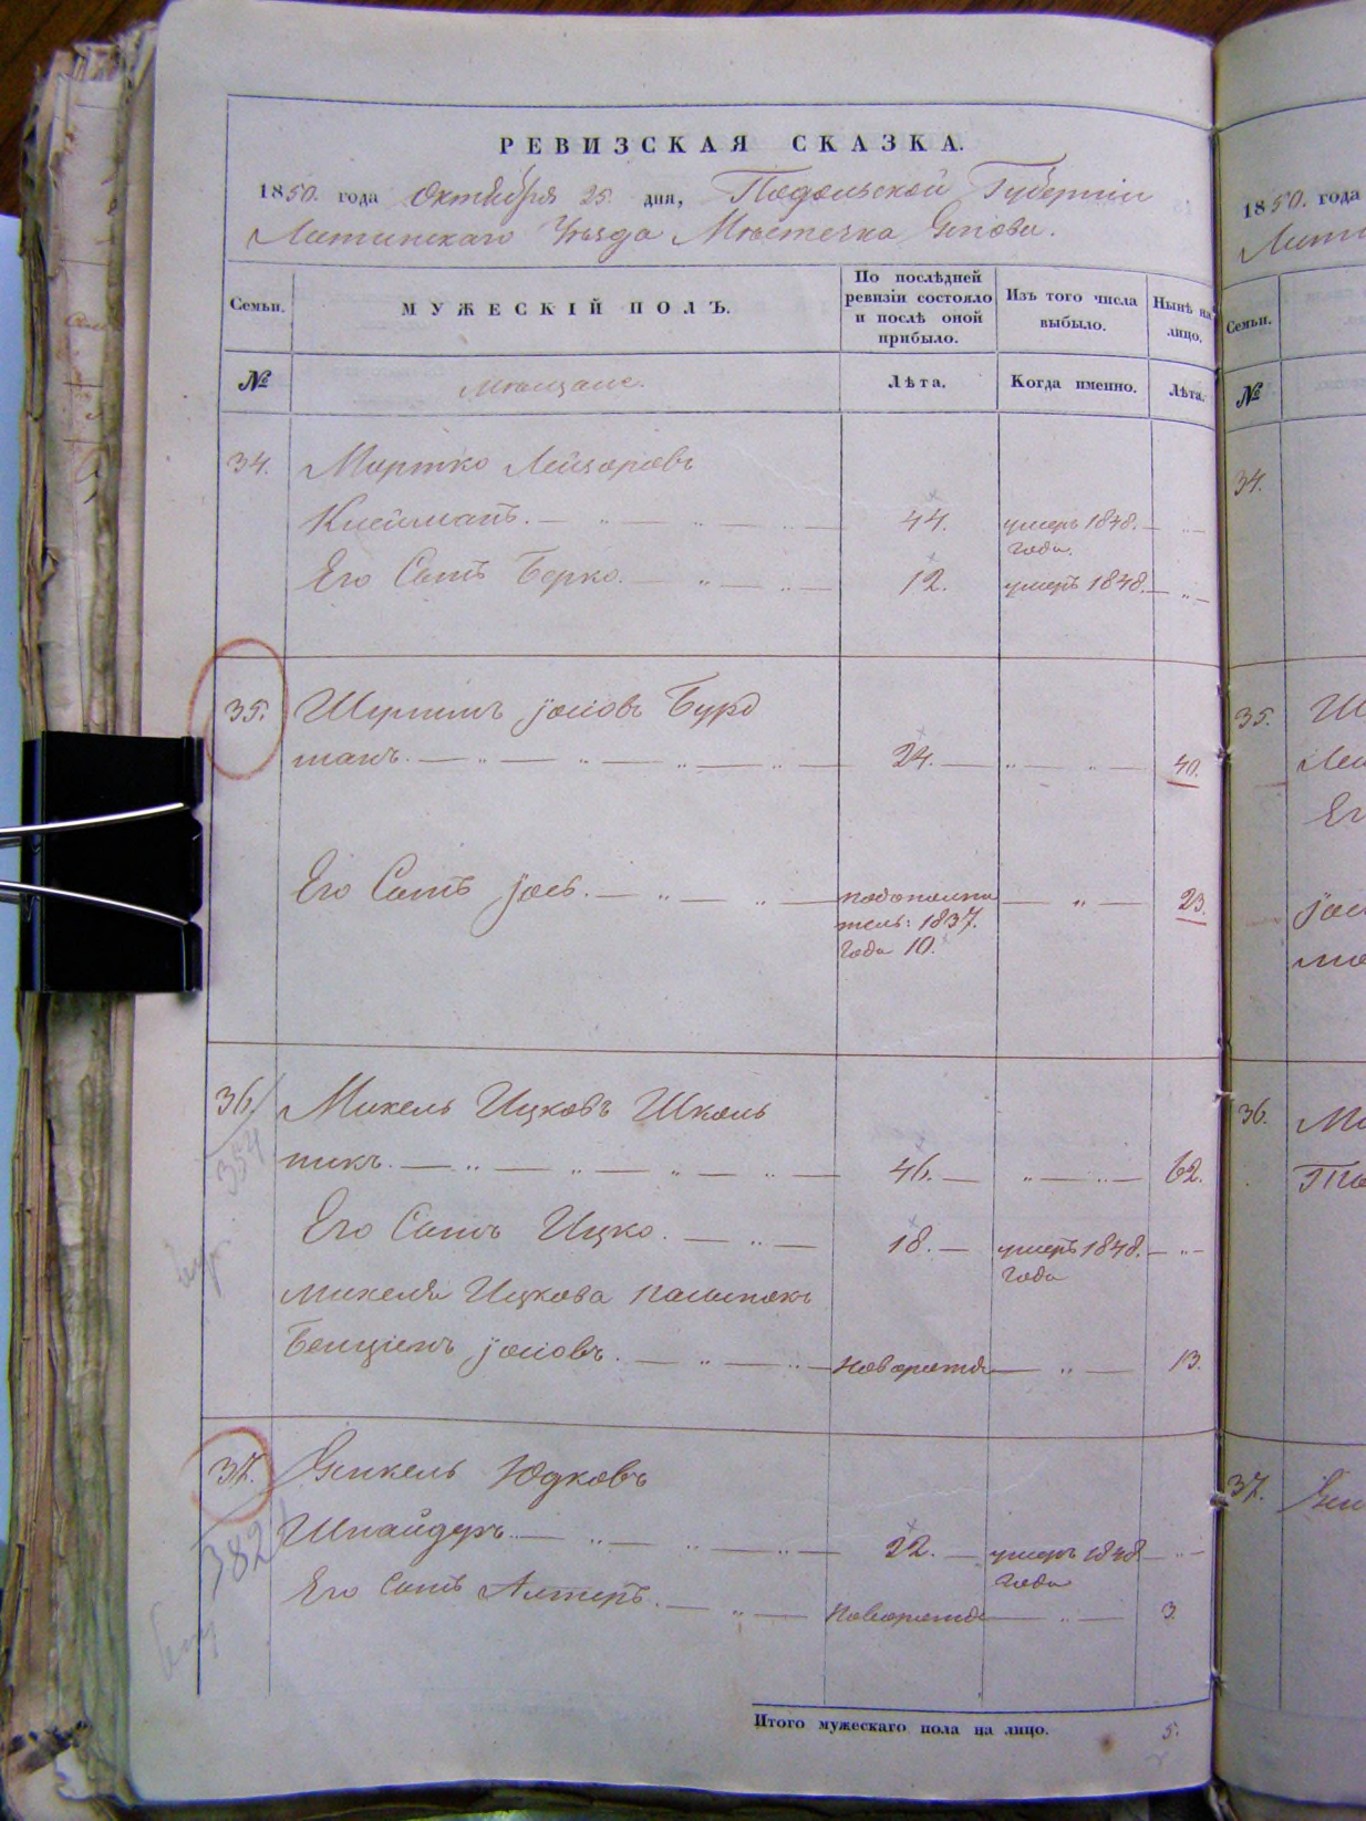 РЕВИЗСКАЯ СКАЗКА.
1850. года Октября 25. дня, Подольской Губерніи
Литинскаго Уѣзда Мѣстечка
Семьи.
МУЖЕСКІЙ ПОЛЪ.
По послѣдней
ревизіи состояло
и послѣ оной
прибыло.
Изъ того числа
выбыло.
Нынѣ на
лицо.
№
Мѣщане.
Лѣта.
Когда именно.
Лѣта.
34.
Мортко Лейзоровъ
Клейманъ.
44.
умеръ 1848.
года.
Его Сынъ Берко.
12.
умеръ 1848.
35.
Іосіовъ Бурд
манъ.
24.
40.
Его Сынъ Іось.
тель: 1837.
года 10.
23.
36.
354
Михель Ицковъ Школь
никъ.
46.
62.
Его Сынъ Ицко.
18.
умеръ 1848.
года
Михеля Ицкова
Бенціенъ Іосіовъ.
новорожд
13.
37.
382
Юдковъ
Шнайдеръ.
22.
умеръ 1848
года
Его Сынъ Алтеръ.
Новорожд
3.
Итого мужескаго пола на лицо.
5.
1850. года
Семьи.
№
34.
35.
36.
37.